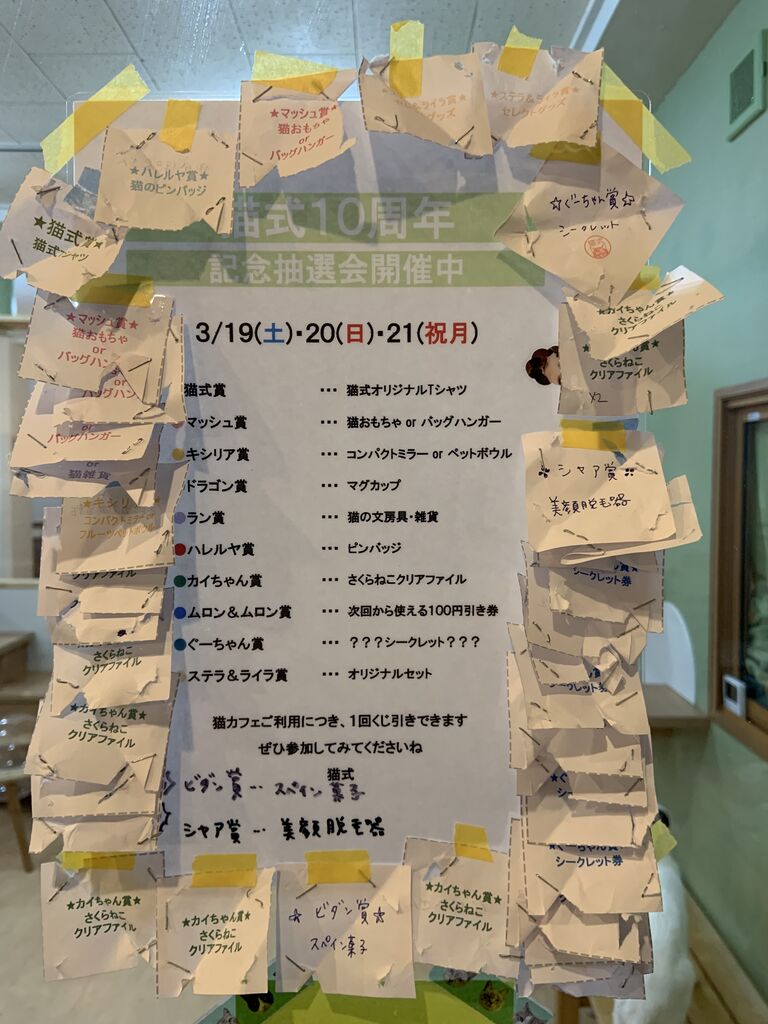 ★マッシュ賞★
猫おもちゃ
or
バッグハンガー
★ステラ&ライラ賞★
セレクトグッズ
★ハレルヤ賞★
猫のピンバッジ
★猫式賞★
猫式Tシャツ
☆ぐーちゃん賞☆
シークレット
猫式10周年
記念抽選会開催中
3/19(土)・20(日)・21(祝月)
猫式賞 … 猫式オリジナルTシャツ
マッシュ賞 … 猫おもちゃ or バッグハンガー
キシリア賞 … コンパクトミラー or ペットボウル
ドラゴン賞 … マグカップ
ラン賞 … 猫の文房具・雑貨
ハレルヤ賞 … ピンバッジ
カイちゃん賞 … さくらねこクリアファイル
ムロン&ムロン賞 … 次回から使える100円引き券
ぐーちゃん賞 … ???シークレット???
ステラ&ライラ賞 … オリジナルセット
猫カフェご利用につき、1回くじ引きできます
ぜひ参加してみてくださいね
猫式
ビダン賞… スペイン菓子
シャア賞… 美顔脱毛器
★マッシュ賞★
猫おもちゃ
or
バッグハン
バッグハンガー
or
猫雑貨
コンパクトミ
フルーツペットボウル
クリアファイル
さくらねこ
クリアファイル
★カイちゃん賞★
さくらねこ
クリアファイル
★カイちゃん賞★
さくらねこ
クリアファイル
さくらねこ
クリアファイル
X2
シャア賞
美顔脱毛器
シークレット券
シークレット券
★ぐーちゃん賞★
シークレット券
★カイちゃん賞★
さくらねこ
クリアファイル
★カイちゃん賞★
さくらねこ
クリアファイル
☆ビダン賞☆
スペイン菓子
★カイちゃん賞★
さくらねこ
クリアファイル